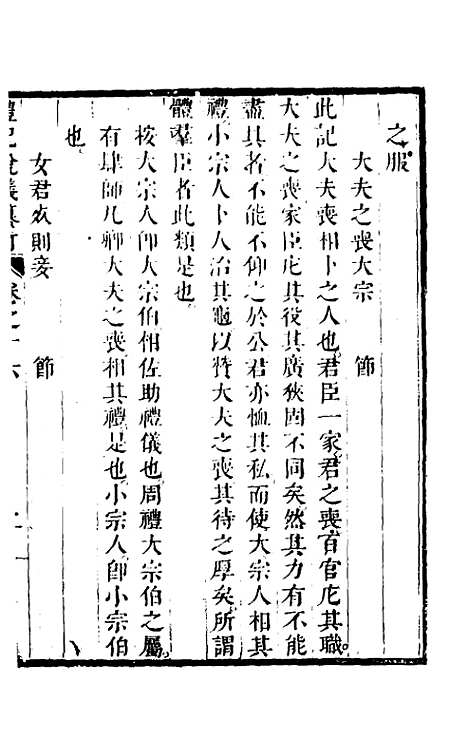 之服
大夫之喪大宗　　節
此記大夫喪相卜之人也君臣一家君之喪百官庀其職
大夫之喪家臣庀其役其廣狹固不同矣然其力有不能
盡其者不能不仰之於公君亦恤其私而使大宗人相其
禮小宗人卜人治其龜以贊大夫之喪其待之厚矣所謂
體羣臣者此類是也
按大宗人卽大宗伯相佐助禮儀也周禮大宗伯之屬
有肆師凡卿大夫之喪相其禮是也小宗人卽小宗伯
也
女君　則妾　　節
禮記說義纂訂　卷之十六